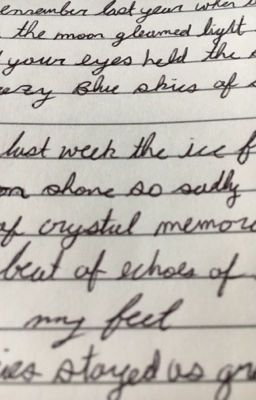 remember last year when
the moon gleamed bright
your eyes held the
Blue skies of
last week the ice
shone so sadly
of crystal
beat of echoes of
my feet
stayed as